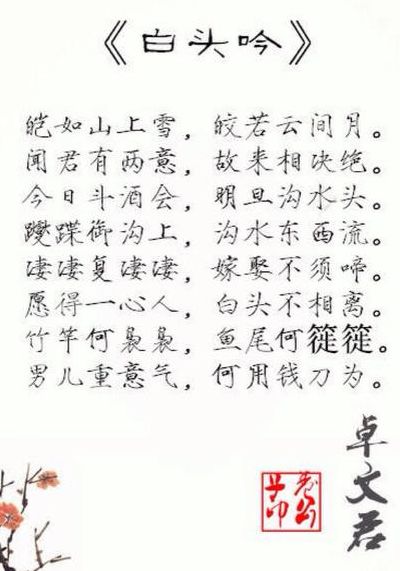 《白头吟》
皑如山上雪,皎若云间月。
闻君有两意,故来相决绝。
今日斗酒会,明旦沟水头。
躞蹀御沟上,沟水东西流。
凄凄复凄凄,嫁娶不须啼。
愿得一心人,白头不相离。
竹竿何袅袅,鱼尾何簁簁。
男儿重意气,何用钱刀为。
卓文君